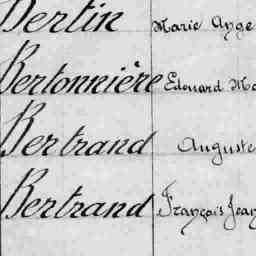 Bertin Marie Ange
Bertonnière Edouard Ma
Bertrand Auguste
Bertrand François Jean